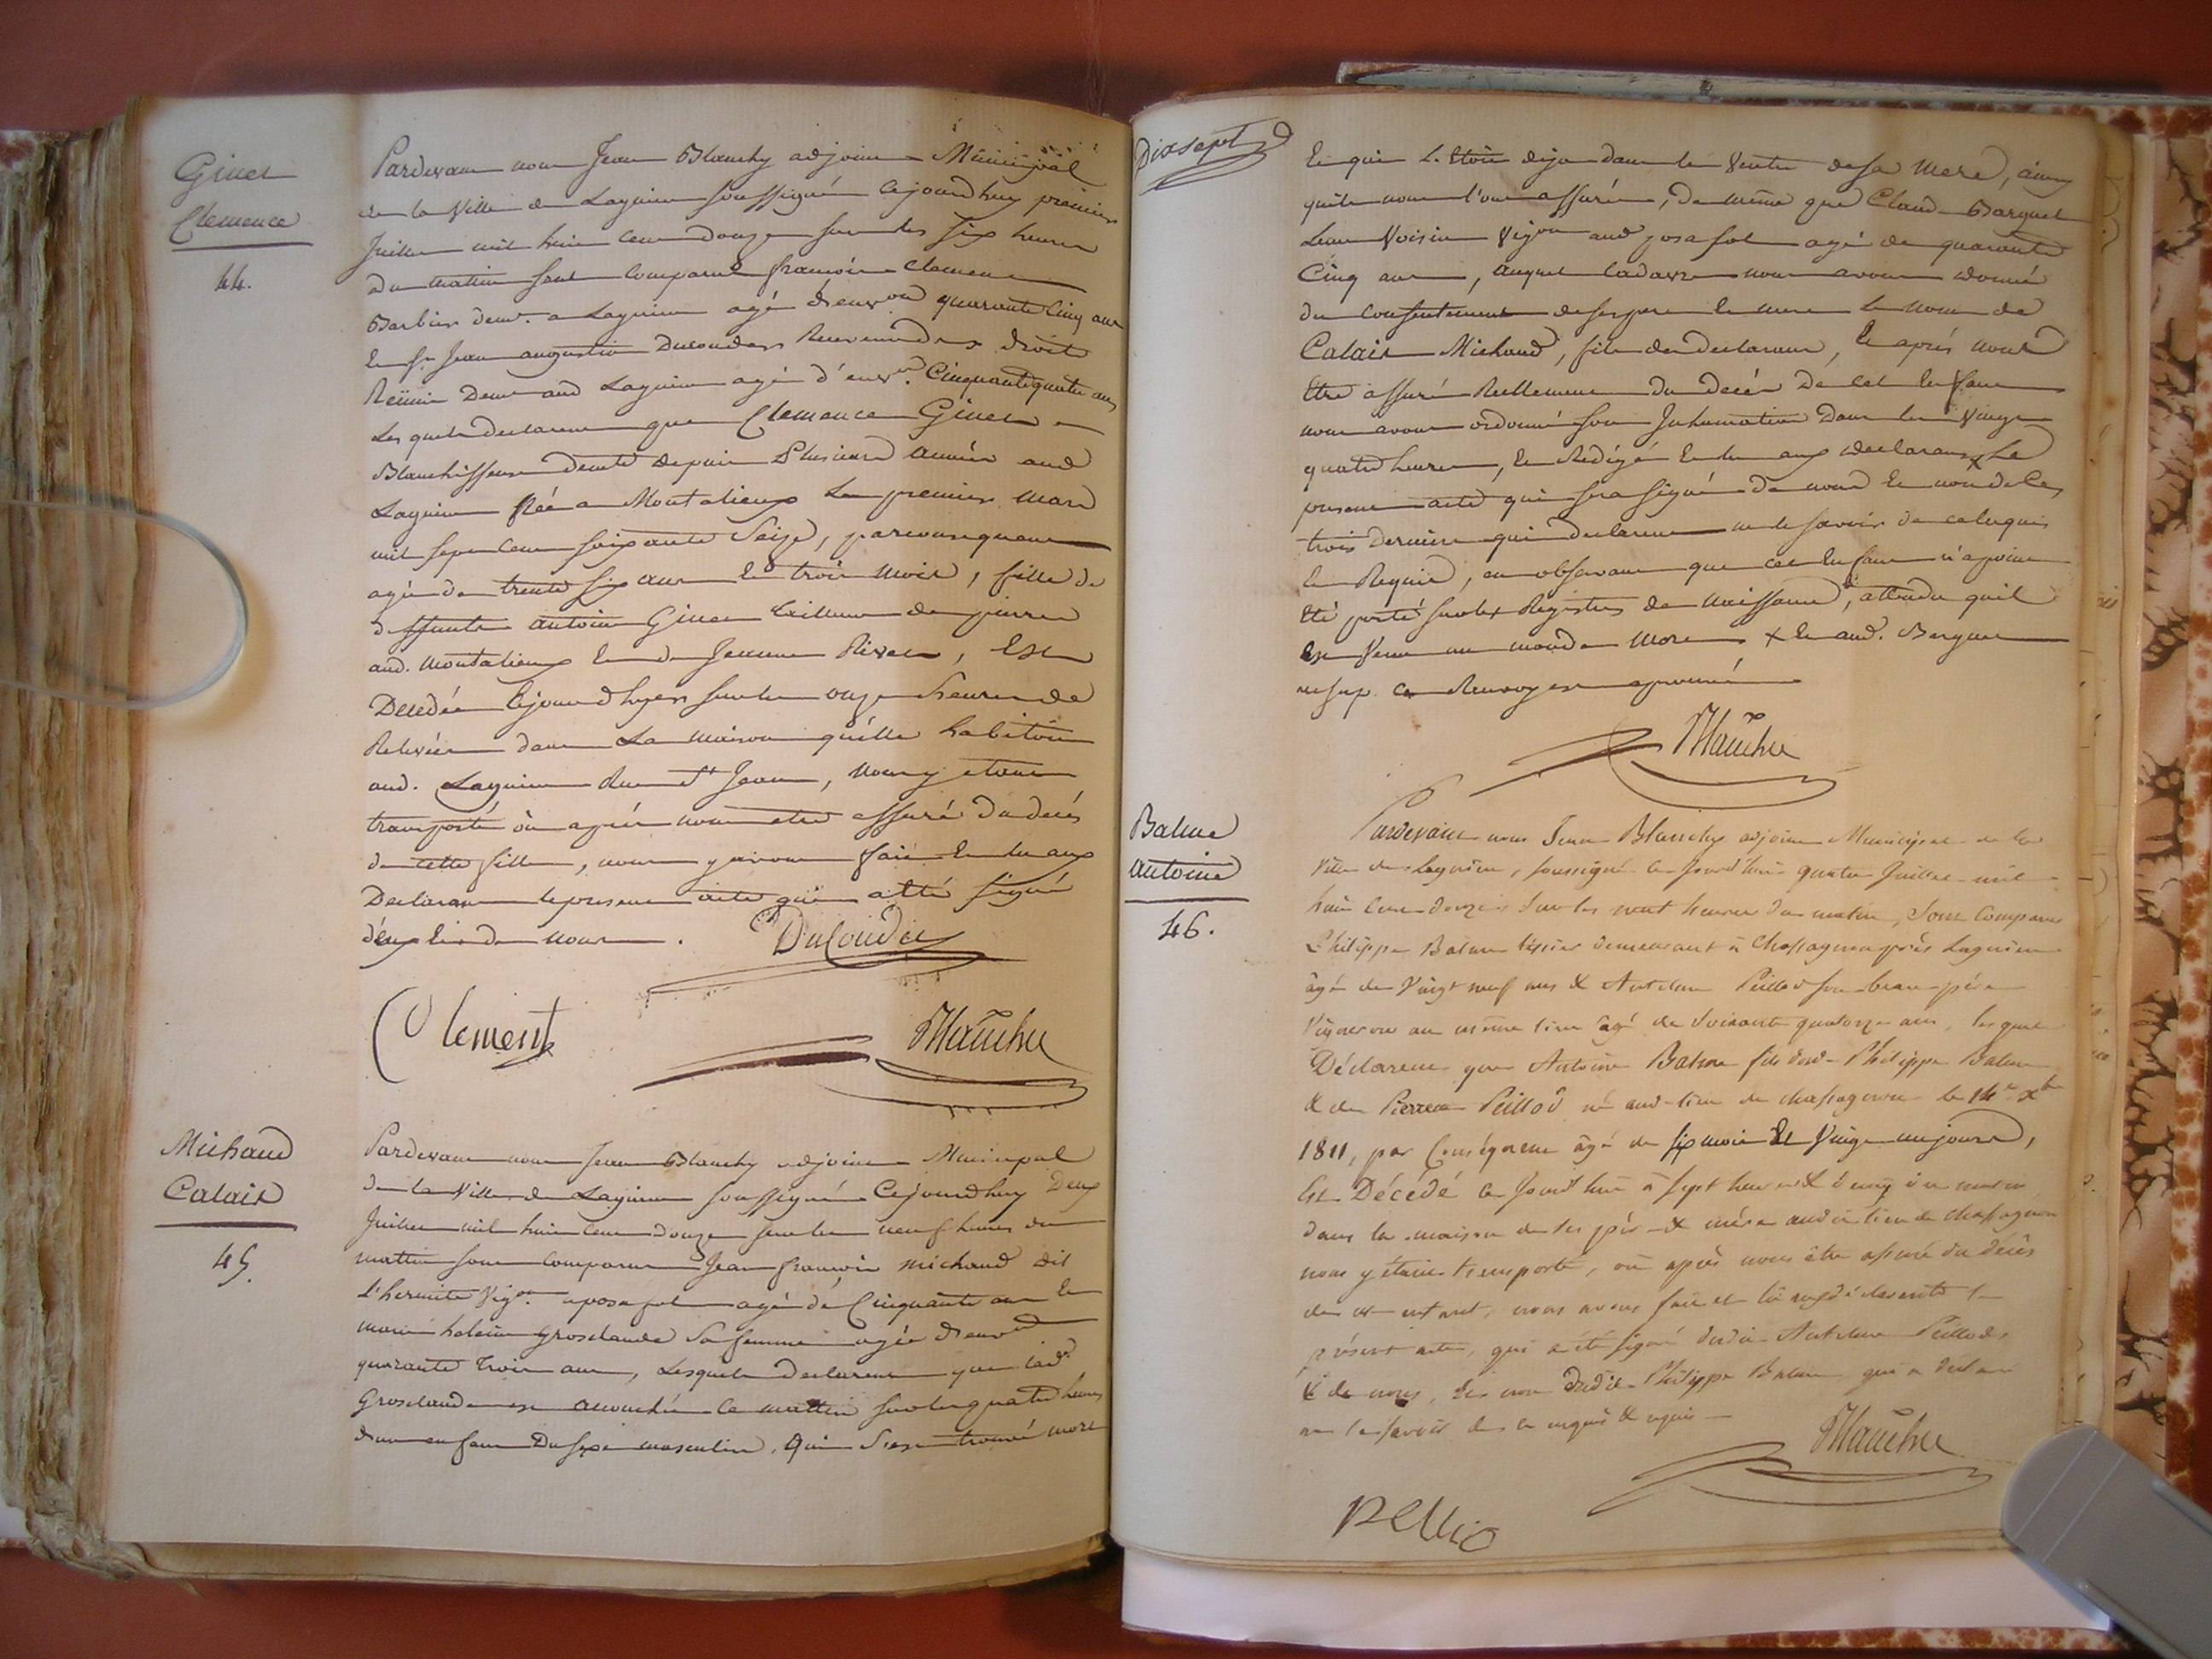 Ginet
Clemence
44.
Pardevant nous Jean Blanchy adjoint Municipal
de la Ville de Lagnieu soussigné Cejourdhuy premier
Juillet mil huit cent douze sur les six heures
du matin sont comparus françois Clement
Barbier demt. a Lagnieu agé d'environ quarante Cinq ans
Et Sr. Jean augustin Ducoudes Receveur des droits
Réunis Demt aud Lagnieu agé d'envon. Cinquante quatre ans
Les quels declarent que Clemence Ginet
Blanchisseuse demte depuis Plusieurs années aud
Lagnieu Née a Montalieux Le premier Mars
mil sept cent soixante Seize, parconsequent
agée de trente six ans et trois mois, fille de
deffunts antoine Ginet tailleur de pierre
aud. Montalieux Et de Jeanne Rivet, Est
Decedée Cejourdhuy sur les onze heures de
Relevée dans La maison qu'elle habitoit
aud. Lagnieu Rue St Jean, Nous y etant
transporté où après nous etre assuré du decés
de cette fille, nous y avons fait Et lu aux
Declarants le present acte qui a été signé
d'eux Et de nous.
Ducoudes
Clement
Blanchy
Michaud
Calais
45.
Pardevant nous Jean Blanchy adjoint Municipal
de la Ville de Lagnieu soussigné Cejourdhuy Deux
Juillet mil huit cent douze sur les neuf heures du
mattin sont comparus Jean françois michaud dit
L'hermite Vigon. a posafol agé de Cinquante ans Et
marie Grosclaude Sa femme agée d'environ
quarante trois ans, Lesquels declarent que lad.
Grosclaude est accouchée ce mattin sur les quatre heures
d'un enfant Du sexe masculin, Qui s'est trouvé mort
Dixsept
Et qui L'Etoit deja dans le Ventre de sa Mere, ainsy
quils nous l'ont assuré, De même que Claude Barquet
Leur Voisin Vigon aud posafol agé de quarante
Cinq ans, auquel Cadavre nous avons donné
du Consentement de ses pere Et mere Le Nom de
Calais Michaud, fils des declarants, Et après nous
Etre assuré Reellement du decés De cet Enfant
nous avons ordonné son Inhumation Dans les Vingt
quatre heures, Et Redigé Et lu aux declarants x Le
present acte qui sera signé de nous Et non de Ces
trois derniers qui declarent ne le savoir de ce enquis
Et Requis, en observant que cet Enfant n'a point
Eté porté sur les Registres de Naissance, attendu quil
Est Venu au monde Mort x Et aud. Barquet
Ce Renvoy est aprouvé
Blanchy
Balme
Antoine
46.
Pardevant nous Jean Blanchy adjoint Municipal de la
Ville de Lagnieu, soussigné ce jourd'hui quatre Juillet mil
huit Cent douze sur les neuf heures du matin, sont Comparus
Philippe Balme demeurant à Chassagne près Lagnieu
âgé de Vingt neuf ans & Antelme Peillod son beau-père
Vigneron au même lieu âgé de soixante quatorze ans, lesquels
Déclarent que Antoine Balme fils dud. Philippe Balme
& de Pierrette Peillod né aud. lieu de chassagne le 14e xbre
1811, par Conséquent âgé de six mois Et Vingt un jours,
Est Décédé ce jourd'hui à sept heures du matin
dans la maison de ses père & mère audit lieu de Chassagne
nous y étant transporté, où après nous être assuré du décès
de cet enfant, nous avons fait et lu aux déclarants le
présent acte, qui a été signé dudit Antelme Peillod,
& de nous, Et non dudit Philippe Balme qui a déclaré
ne le savoir de ce enquis & requis
Blanchy